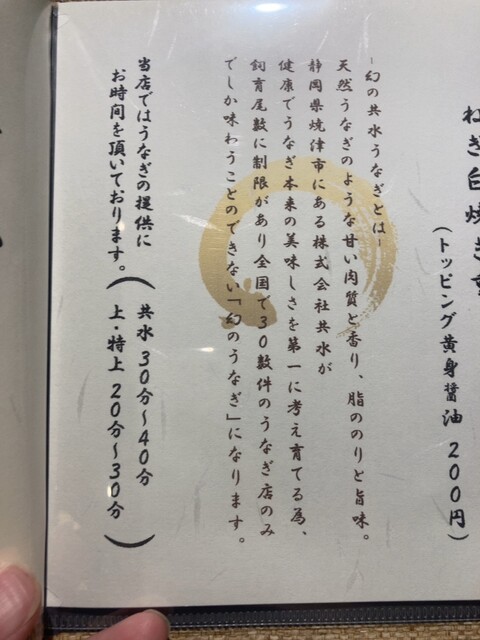 ねぎ白焼き
(トッピング黄身醤油 200円)
-幻の共水うなぎとは-
天然うなぎのような甘い肉質と香り、脂ののりと旨味。
静岡県焼津市にある株式会社共水が
健康でうなぎ本来の美味しさを第一に考え育てる為、
飼育尾数に制限があり全国で30数件のうなぎ店のみ
でしか味わうことのできない「幻のうなぎ」になります。
当店ではうなぎの提供に
お時間を頂いております。
(共水 30分~40分
上・特上 20分~30分)